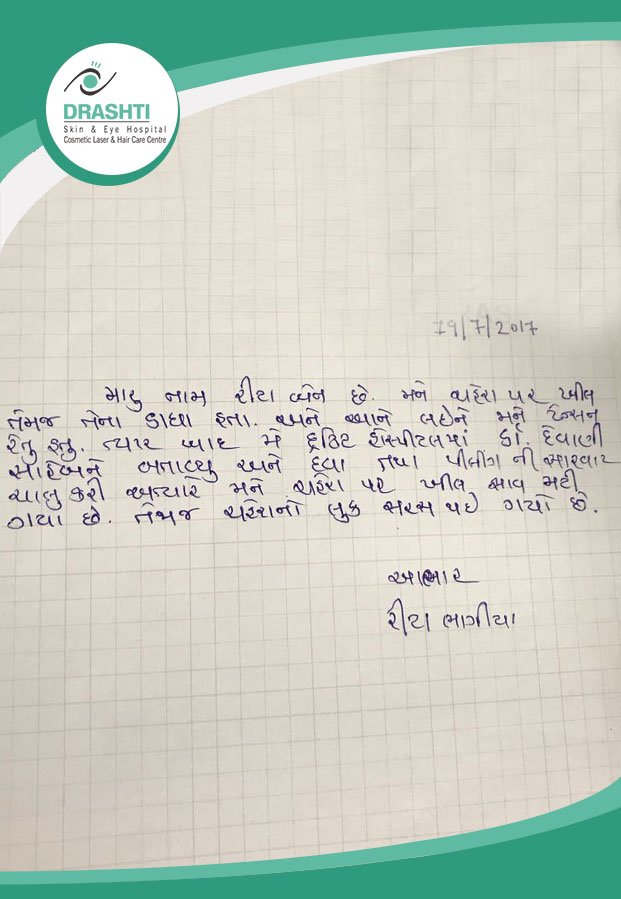 DRASHTI
Skin & Eye Hospital
Cosmetic Laser & Hair Care Centre
19/7/2017
મારુ નામ રીટા બેન છે. મને ચહેરા પર ખીલ
તેમજ તેના ડાઘા હતા. અને આને લઇને મને ટેન્સન
રેતુ હતુ. ત્યાર બાદ મે દ્રષ્ટિ હોસ્પીટલમાં ડૉ. દેવાણી
સાહેબને બતાવ્યુ અને દવા તથા પીલીંગ ની સારવાર
ચાલુ કરી અત્યારે મને ચહેરા પર ખીલ સાવ મટી
ગયા છે. તેમજ ચહેરાનો લુક સરસ થઇ ગયો છે.
આભાર
રીટા ભાગીયા